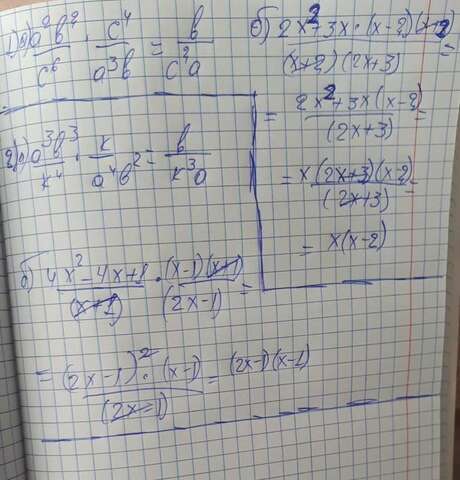 1) а) a²b²/c⁶ · c⁴/a³b = b/c²a
б) 2x²+3x·(x-2)(x+2)/(x+2)(2x+3) =
= 2x²+3x(x-2)/(2x+3) =
= x(2x+3)(x-2)/(2x+3) =
= x(x-2)
2) а) a³b³/k⁴ · k/a⁴b² = b/k³a
б) 4x²-4x+1/(x+1) · (x-1)(x+1)/(2x-1) =
= (2x-1)²·(x-1)/(2x-1) = (2x-1)(x-1)